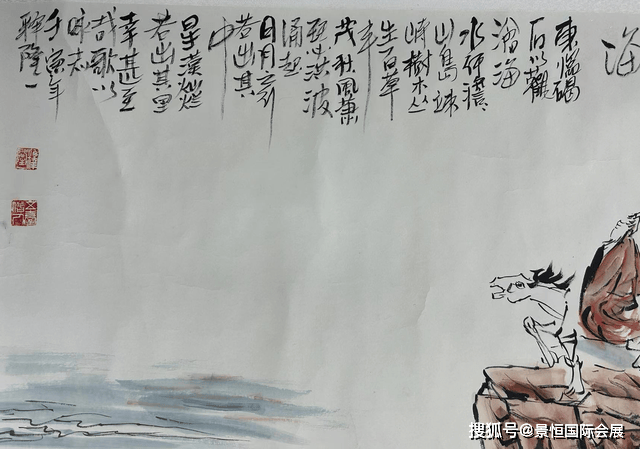 海
東臨碣
石以觀
滄海
水何澹
山島竦
峙樹木丛
生百草
丰
茂秋風蕭
瑟洪波
涌起
日月之行
若出其
中
星漢燦爛
若出其里
幸甚至
哉歌以
咏志
壬寅年
隆一
搜狐号@景恒国际会展